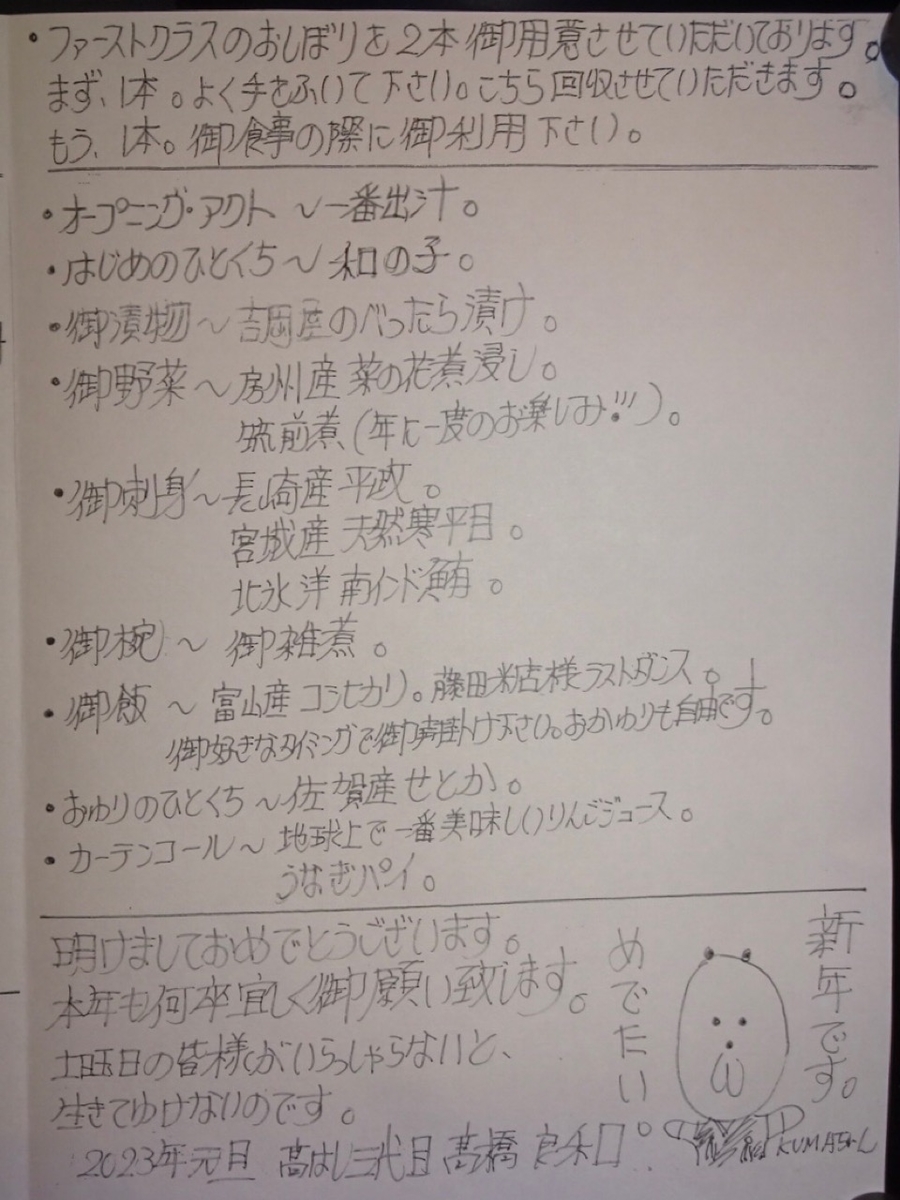 ・ファーストクラスのおしぼりを2本御用意させていただいております。
まず、1本。よく手をふいて下さい。こちら回収させていただきます。
もう、1本。御食事の際に御利用下さい。
・オープニング・アクト～一番出汁。
・はじめのひとくち～和の子。
・御漬物～吉岡屋のべったら漬け。
・御野菜～房州産菜の花煮浸し。
筑前煮(年に一度のお楽しみ!!!)。
・御刺身～長崎産平政。
宮城産天然寒平目。
北氷洋南インド鮪。
・御椀～御雑煮。
・御飯～富山産コシヒカリ。藤田米店様ラストダンス。
御好きなタイミングで御声掛け下さい。おかわりも自由です。
・おわりのひとくち～佐賀産せとか。
・カーテンコール～地球上で一番美味しいりんごジュース。
うなぎパイ。
明けましておめでとうございます。
本年も何卒宜しく御願い致します。
土曜日の皆様がいらっしゃらないと、
生きてゆけないのです。
2023年元旦 高はし三代目 高橋
新年です。
めでたい。